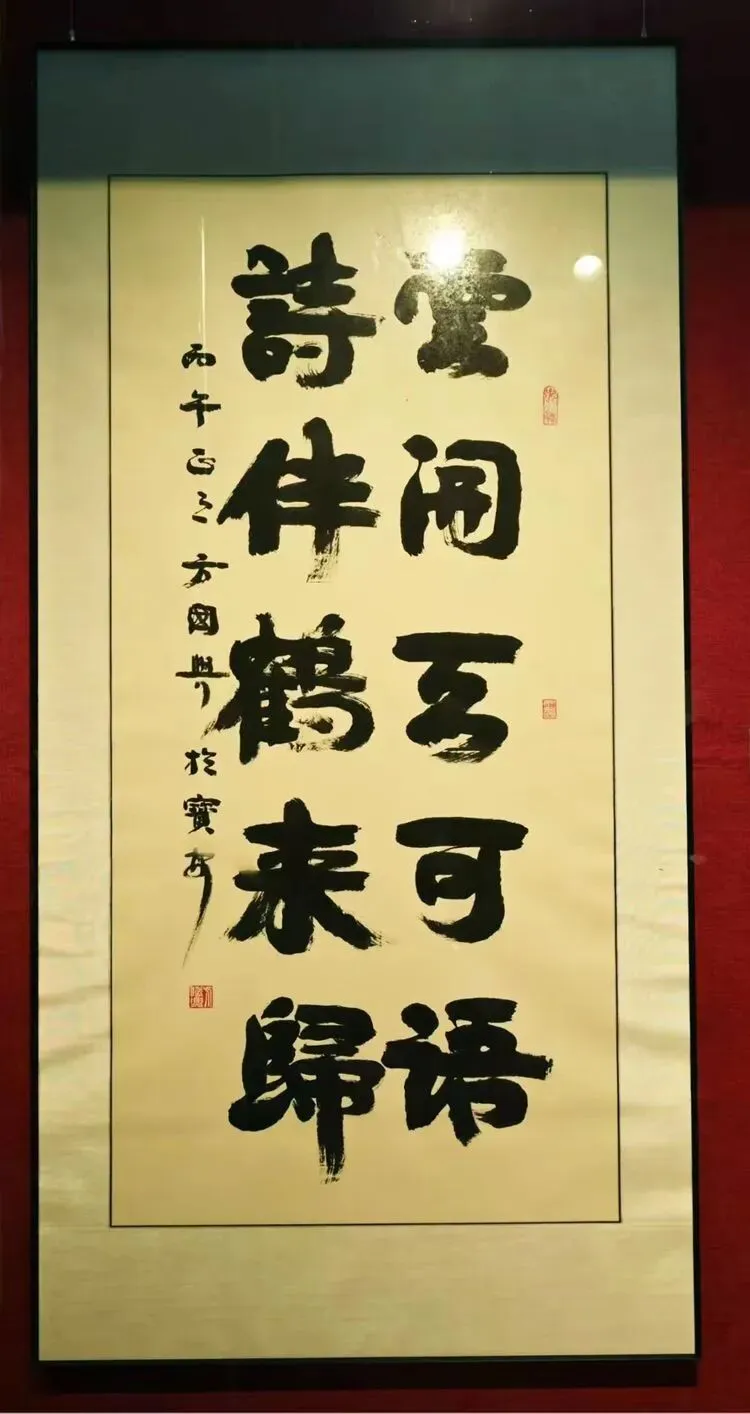 雲闲互可语
詩伴鶴来歸
丙午正之方國興於寶安